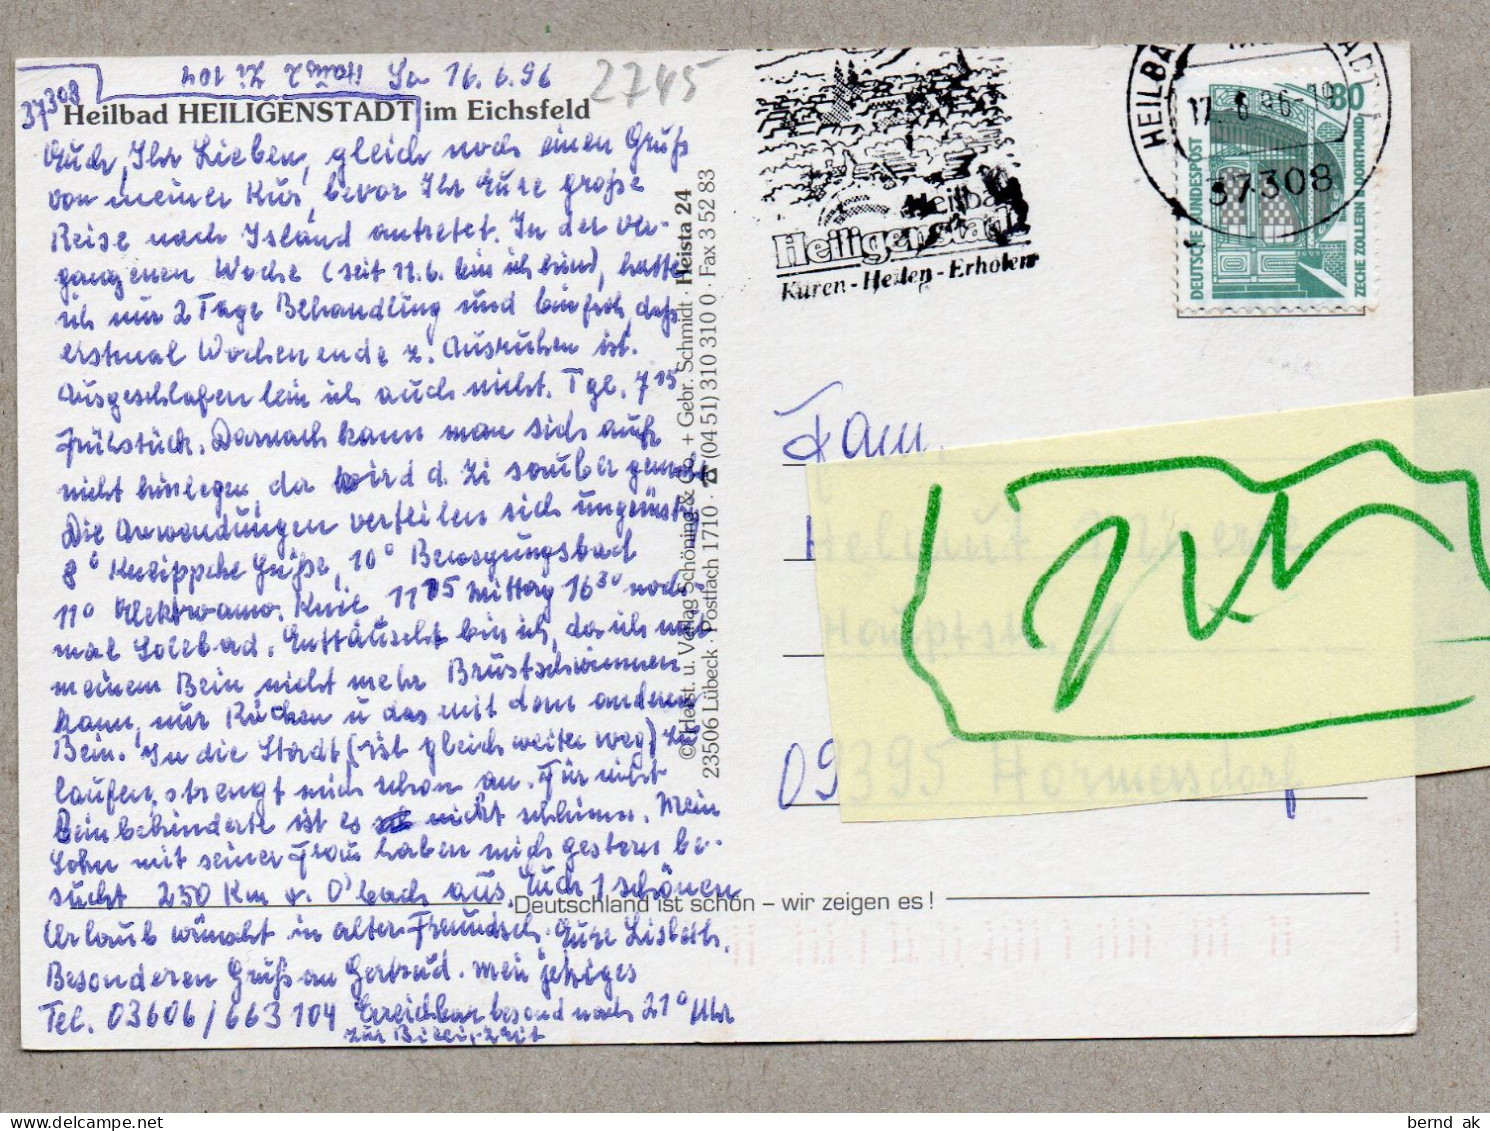 37308 Haus 2 Zi 104 So 16.6.96 2745
Heilbad HEILIGENSTADT im Eichsfeld
Euch, Ihr Lieben, gleich noch einen Gruß
von meiner Kur, bevor Ihr Eure große
Reise nach Island antretet. In der ver-
gangenen Woche (seit 11.6. bin ich hier), hatte
ich nur 2 Tage Behandlung und bin froh, daß
erstmal Wochenende z. Ausruhen ist.
Ausgeschlafen bin ich auch nicht. Tgl. 7 15
Frühstück. Darnach kann man sich auch
nicht hinlegen, da wird d. Zi sauber gemacht
Die Anwendungen verteilen sich ungünstig
8° Kneippche Güße, 10° Bewegungsbad
11° Knie, 11 45 Mittag 16 30 noch-
mal Solebad. Enttäuscht bin ich, da ich mit
meinem Bein nicht mehr Brustschwimmen
kann, nur Rücken u das mit dem anderen
Bein. In die Stadt (ist gleich weiter weg) zu
laufen, strengt mich schon an. Für nicht
Beinbehinderte ist es nicht schlimm. Mein
Sohn mit seiner Frau haben mich gestern be-
sucht 250 Km v. O'bach aus. Euch 1 schönen
Urlaub wünscht in alter Freundsch. Eure Lisbeth.
Besonderen Gruß an Gertrud. Mein jetziges
Tel. 03606/663 104 Erreichbar besond nach 21° Uhr
zur
© Heist. u. Verlag Schöning & Co + Gebr. Schmidt · Heista 24
23506 Lübeck · Postfach 1710 · (04 51) 310 310 0 · Fax 3 52 83
Deutschland ist schön – wir zeigen es!
Heilbad
Heiligenstadt
Kuren - Heilen - Erholen
HEILBAD
17.-6.96-19
37308
80
DEUTSCHE BUNDESPOST
ZECHE ZOLLERN II DORTMUND
Fam.
Helmut
Hauptstr.
09395 Hormersdorf
bernd ak